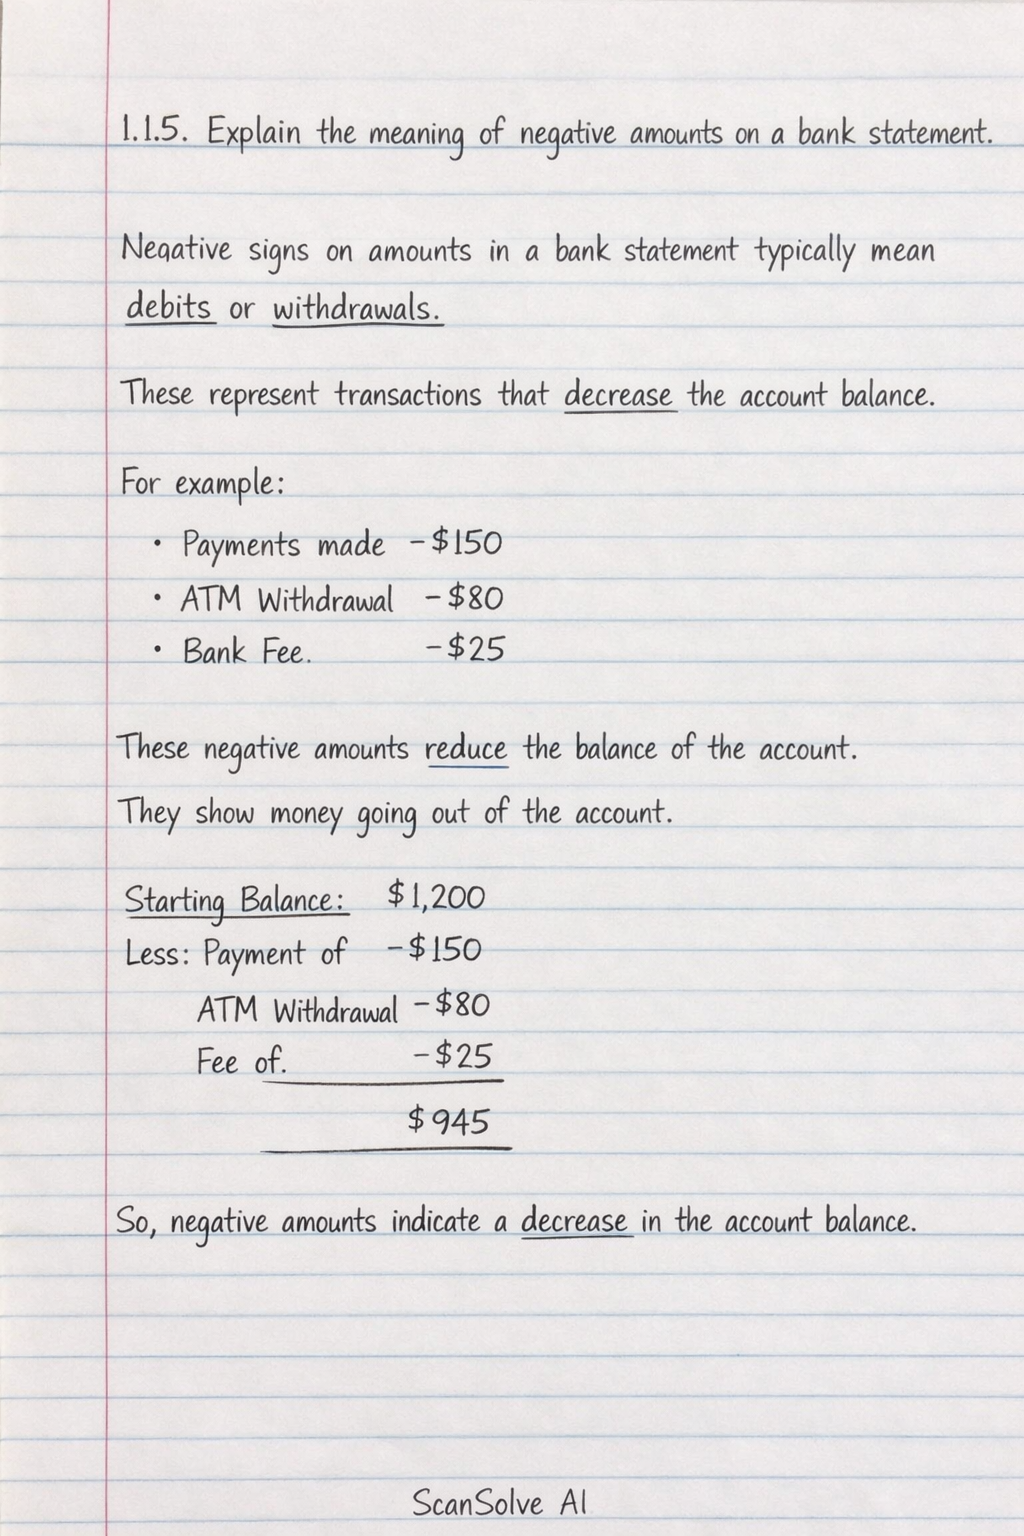 1.1.5. Explain the meaning of negative amounts on a bank statement.
Negative signs on amounts in a bank statement typically mean
debits or withdrawals.
These represent transactions that decrease the account balance.
For example:
• Payments made -$150
• ATM Withdrawal -$80
• Bank Fee. -$25
These negative amounts reduce the balance of the account.
They show money going out of the account.
Starting Balance: $1,200
Less: Payment of -$150
ATM Withdrawal -$80
Fee of. -$25
$945
So, negative amounts indicate a decrease in the account balance.
ScanSolve AI